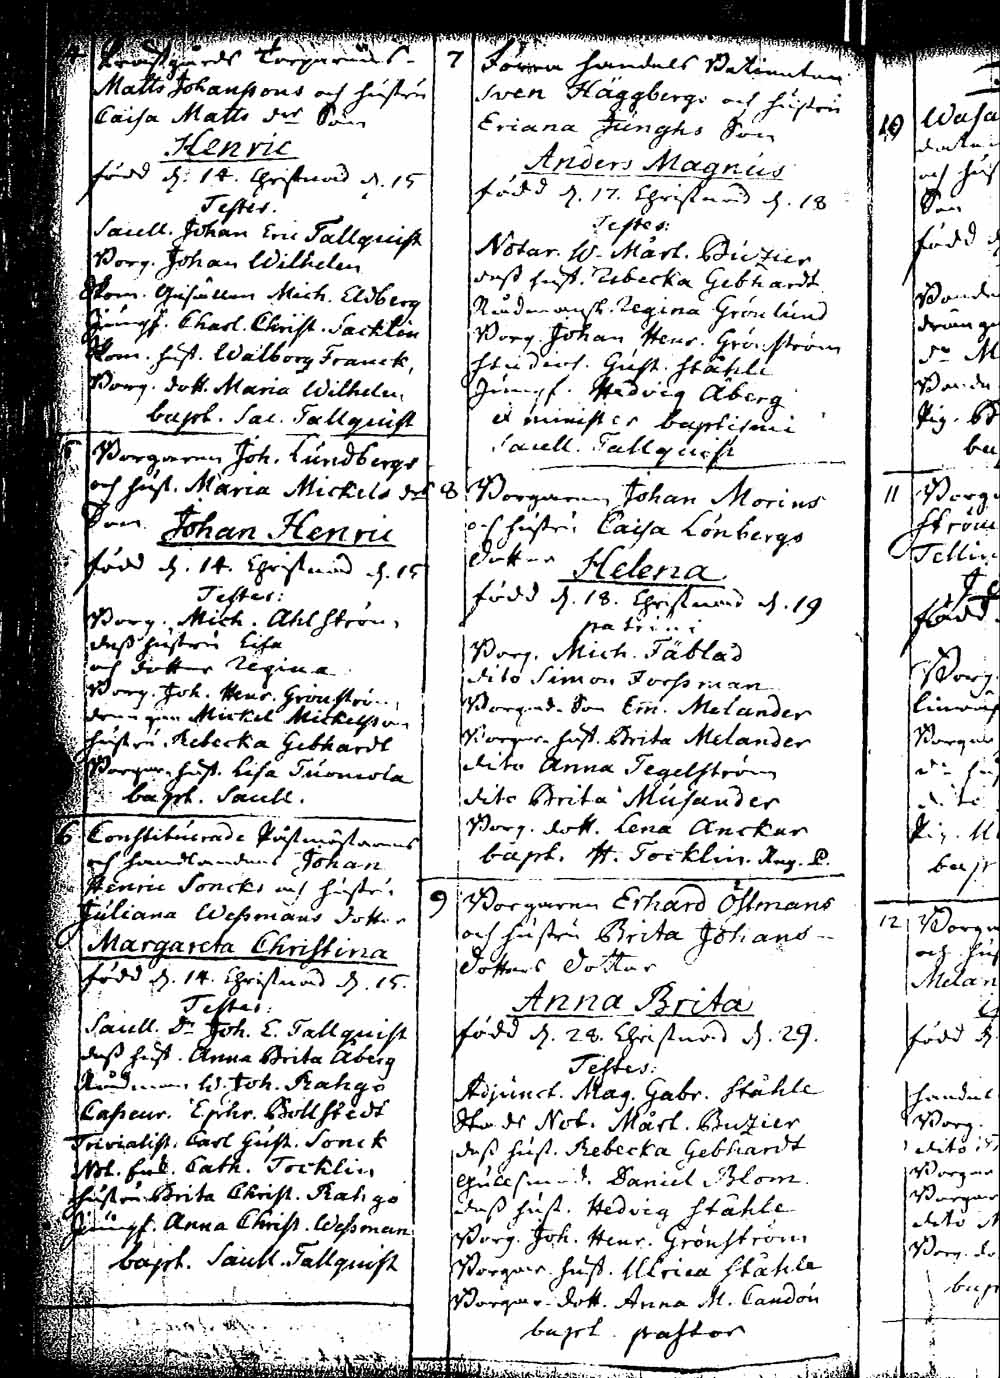 Matts Johanssons och hustru
Caisa Matts dr Son
Henric
född d. 14. Christnad d. 15
Testes.
Sacell. Johan Eric Tallquist
Borg. Johan Wilhelm
Skom. Gesällen Mich. Eldberg
Jungf. Charl. Christ. Sacklin
Skom. hust. Walborg Franck,
Borg. dott. Maria Wilhelm
bapt. Sac. Tallquist
5
Borgaren Joh. Lundbergs
och hust. Maria Mickels dr
Son Johan Henric
född d. 14. Christnad d. 15
Testes:
Borg. Mich. Ahlström,
dess hustru Lisa
och dotter Regina
Borg. Joh. Henr. Grönström,
drengen Mickel Mickelsson
hustru Rebecka Gebhardt
Borgar. hust. Lisa Tuomola
bapt. Sacell.
6
Constituerade Postmästarens
och handlandens Johan
Henric Soncks och hustru
Juliana Wessmans dotter
Margareta Christina
född d. 14. Christnad d. 15.
Testes:
Sacell. Dn Joh. E. Tallquist
dess hust. Anna Brita Åberg
Rådman H. Joh. Rahgo
Casseur. Ephr. Bollstedt
Trivialist. Carl Gust. Sonck
Not. Cath. Tocklin
hustru Brita Christ. Rahgo
Jungf. Anna Christ. Wessman
bapt. Sacell. Tallquist
7
handels
Sven Häggbergs och hustru
Eriana Junghs Son
Anders Magnus
född d. 17. Christnad d. 18
Testes:
Notar. H. Mårt. Buzier
dess hust. Rebecka Gebhardt
Regina Grönlund
Borg. Johan Henr. Grönström
Studios. Gust. Ståhle
Jungf. Hedvig Åberg
et minister baptismi
Sacell. Tallquist
8
Borgaren Johan Morins
och hustru Caisa Lönbergs
dotter Helena
född d. 18. Christnad d. 19
patrini
Borg. Mich. Täblad
dito Simon Forssman
Borgard. Son Em. Melander
Borgar. hust. Brita Melander
dito Anna Tegelström
dito Brita Musander
Borg. dott. Lena Anckar
bapt. H. Tocklin. Reg. P.
9
Borgaren Erhard Östmans
och hustru Brita Johans-
dotters dotter
Anna Brita
född d. 28. Christnad d. 29.
Testes:
Adjunct. Mag. Gabr. Ståhle
Stads Not. Mårt. Buzier
dess hust. Rebecka Gebhardt
Daniel Blom.
dess hust. Hedvig Ståhle
Borg. Joh. Henr. Grönström
Borgar. hust. Ulrica Ståhle
Borgar. dott. Anna M. Candön
bapt. pastor
10
Wasa
och hus
Son
född d
11
Borg
Ström
Tellin
född
Borg.
Borgar
bapt
12
Borgar
och hus
Melan
född d.
handel
Borg.
dito
Borgar
Borgar
dito
Borg. do
bapt